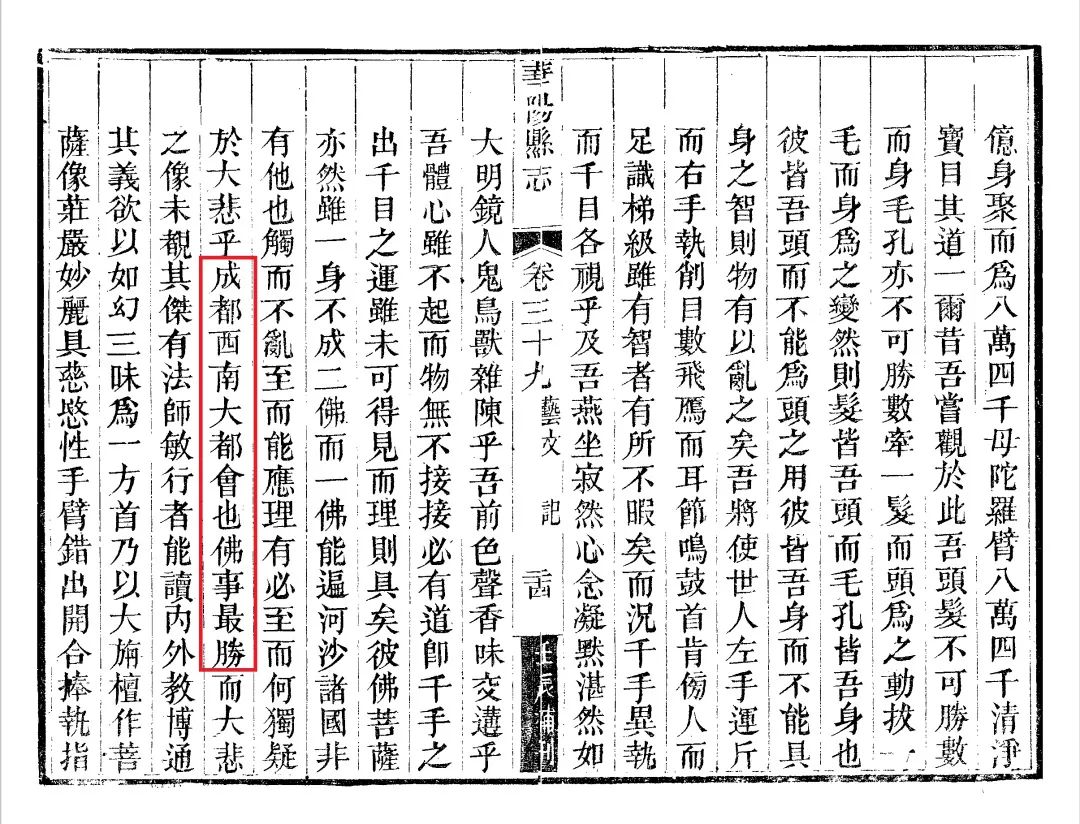 億身聚而爲八萬四千母陀羅臂八萬四千清淨
寶目其道一爾昔吾嘗觀於此吾頭髮不可勝數
而身毛孔亦不可勝數牽一髮而頭爲之動拔一
毛而身爲之變然則髮皆吾頭而毛孔皆吾身也
彼皆吾頭而不能爲頭之用彼皆吾身而不能具
身之智則物有以亂之矣吾將使世人左手運斤
而右手執削目數飛鴈而耳節鳴鼓首肯傍人而
足識梯級雖有智者有所不暇矣而況千手異執
而千目各視乎及吾燕坐寂然心念凝默湛然如
華陽縣志 卷三十九 藝文 記 壬辰補刊
大明鏡人鬼鳥獸雜陳乎吾前色聲香味交遘乎
吾體心雖不起而物無不接接必有道卽千手之
出千目之運雖未可得見而理則具矣彼佛菩薩
亦然雖一身不成二佛而一佛能遍河沙諸國非
有他也觸而不亂至而能應理有必至而何獨疑
於大悲乎成都西南大都會也佛事最勝而大悲
之像未覩其傑有法師敏行者能讀內外教博通
其義欲以如幻三昧爲一方首乃以大旃檀作菩
薩像莊嚴妙麗具慈愍性手臂錯出開合捧執指